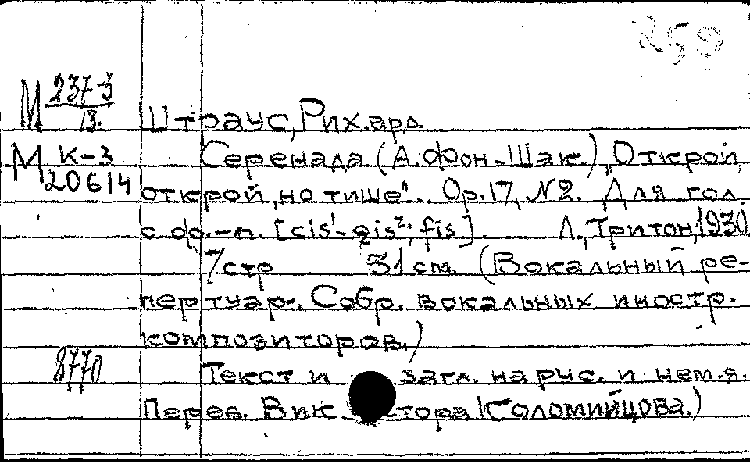 259
М 237-3/13.
Штраус, Рихард.
М К-3 20614
Серенада (А. фон-Шак.) „Открой,
открой, но тише"... Op. 17, № 2. Для гол.
с фо.-п. [cis¹-gis²; fis]. Л., Тритон, 1930
7 стр 31 см. (Вокальный ре-
пертуар. Собр. вокальных иностр.
композиторов.)
8770
Текст и загл. на рус. и нем. я.
Перев. Вик тора (Соломийцова.)